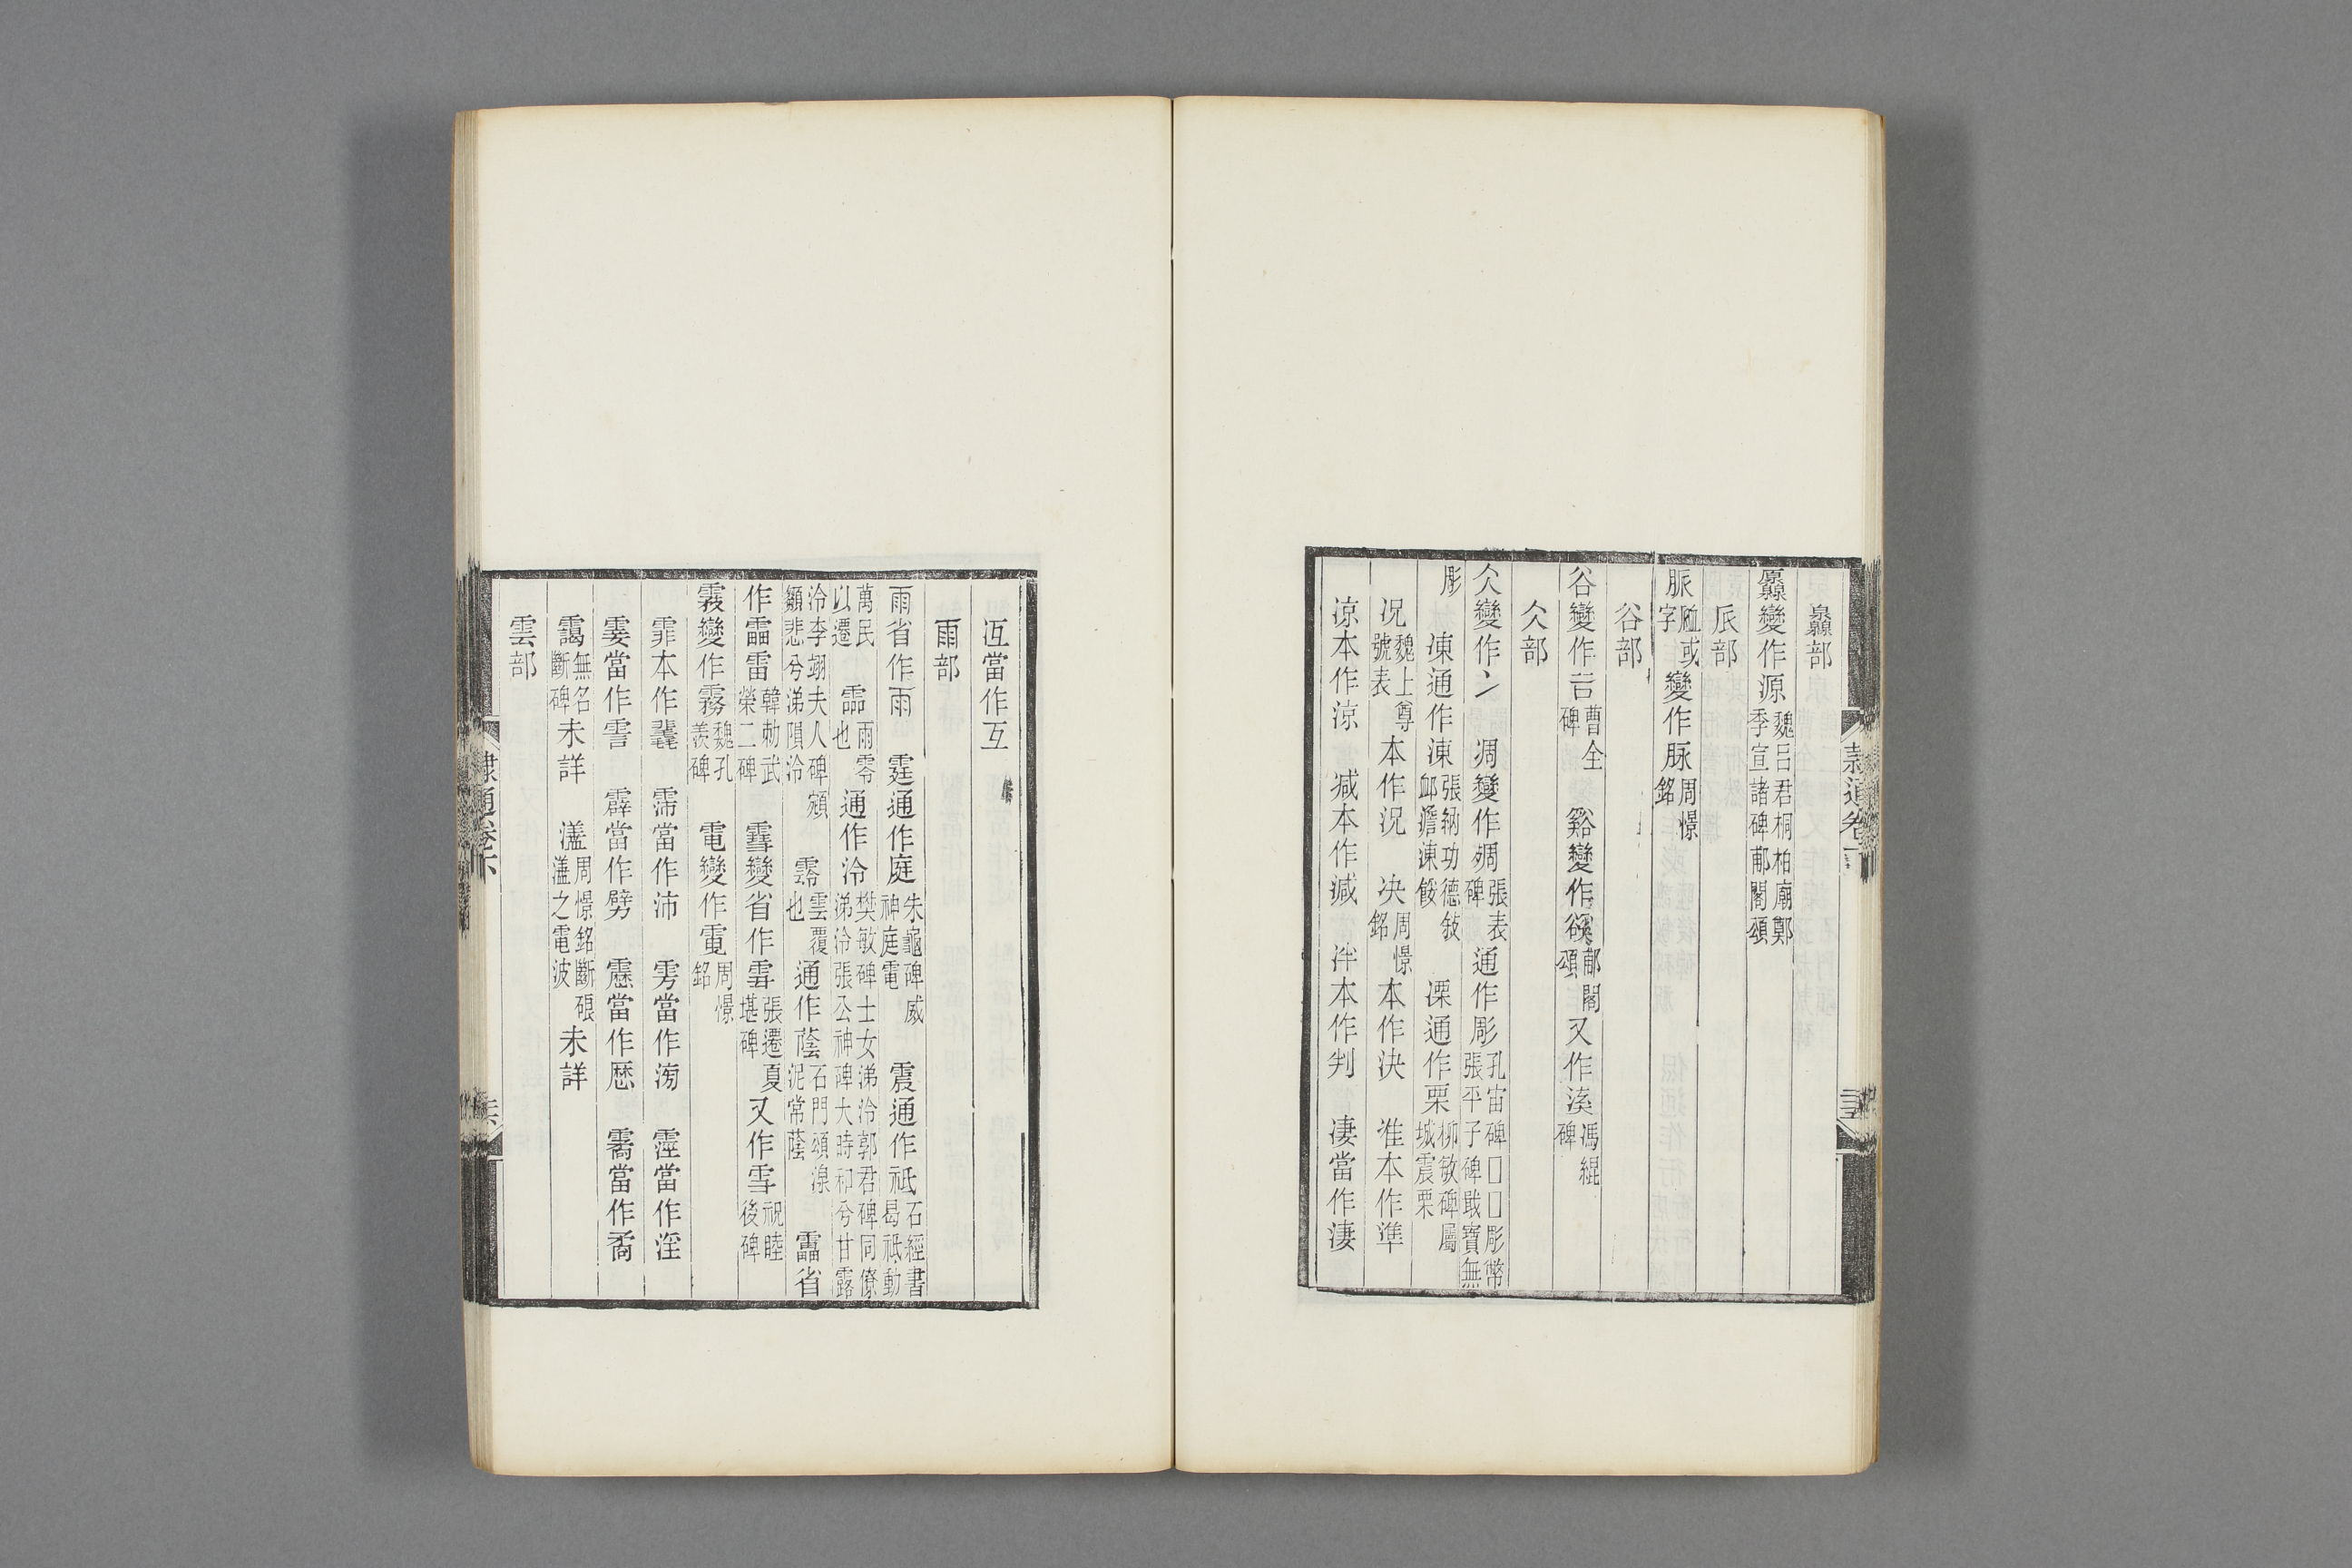 灥部
厵變作源魏呂君桐柏廟鄭季宣諸碑郙閣頌
𠂢部
脈䘑或字變作脉周憬銘
谷部
谷變作𠮷曹全碑 谿變作䜫郙閣頌又作渓馮緄碑
仌部
仌變作冫 凋變作殦張表碑通作彫孔宙碑□□彫幣張平子碑戢寶無
彫 凍通作涷張納功德敍卹澹涷餒 凓通作栗柳敏碑屬城震栗
况魏上尊號表本作況 决周憬銘本作決 准本作準
凉本作涼 减本作減 冸本作判 凄當作淒
冱當作互
雨部
雨省作雨 霆通作庭朱龜碑威神庭電 震通作祗石經書曷祗動
萬民以遷 霝雨零也通作泠樊敏碑士女涕泠郭君碑同僚涕泠張公神碑大時和兮甘露
泠李翊夫人碑顙顙悲兮涕隕泠 霒雲覆也通作蔭石門頌湶泥常蔭 靁省
作畾雷韓勑武榮二碑 䨮變省作雪張遷夏堪碑又作雪祝睦後碑
霚變作霧魏孔羨碑 電變作電周憬銘
霏本作靟 霈當作沛 雱當作滂 霪當作淫
霎當作霅 霹當作劈 靂當作歷 霱當作矞
靄無名斷碑未詳 瀘周憬銘斷硍瀘之電波未詳
雲部
隸通卷下